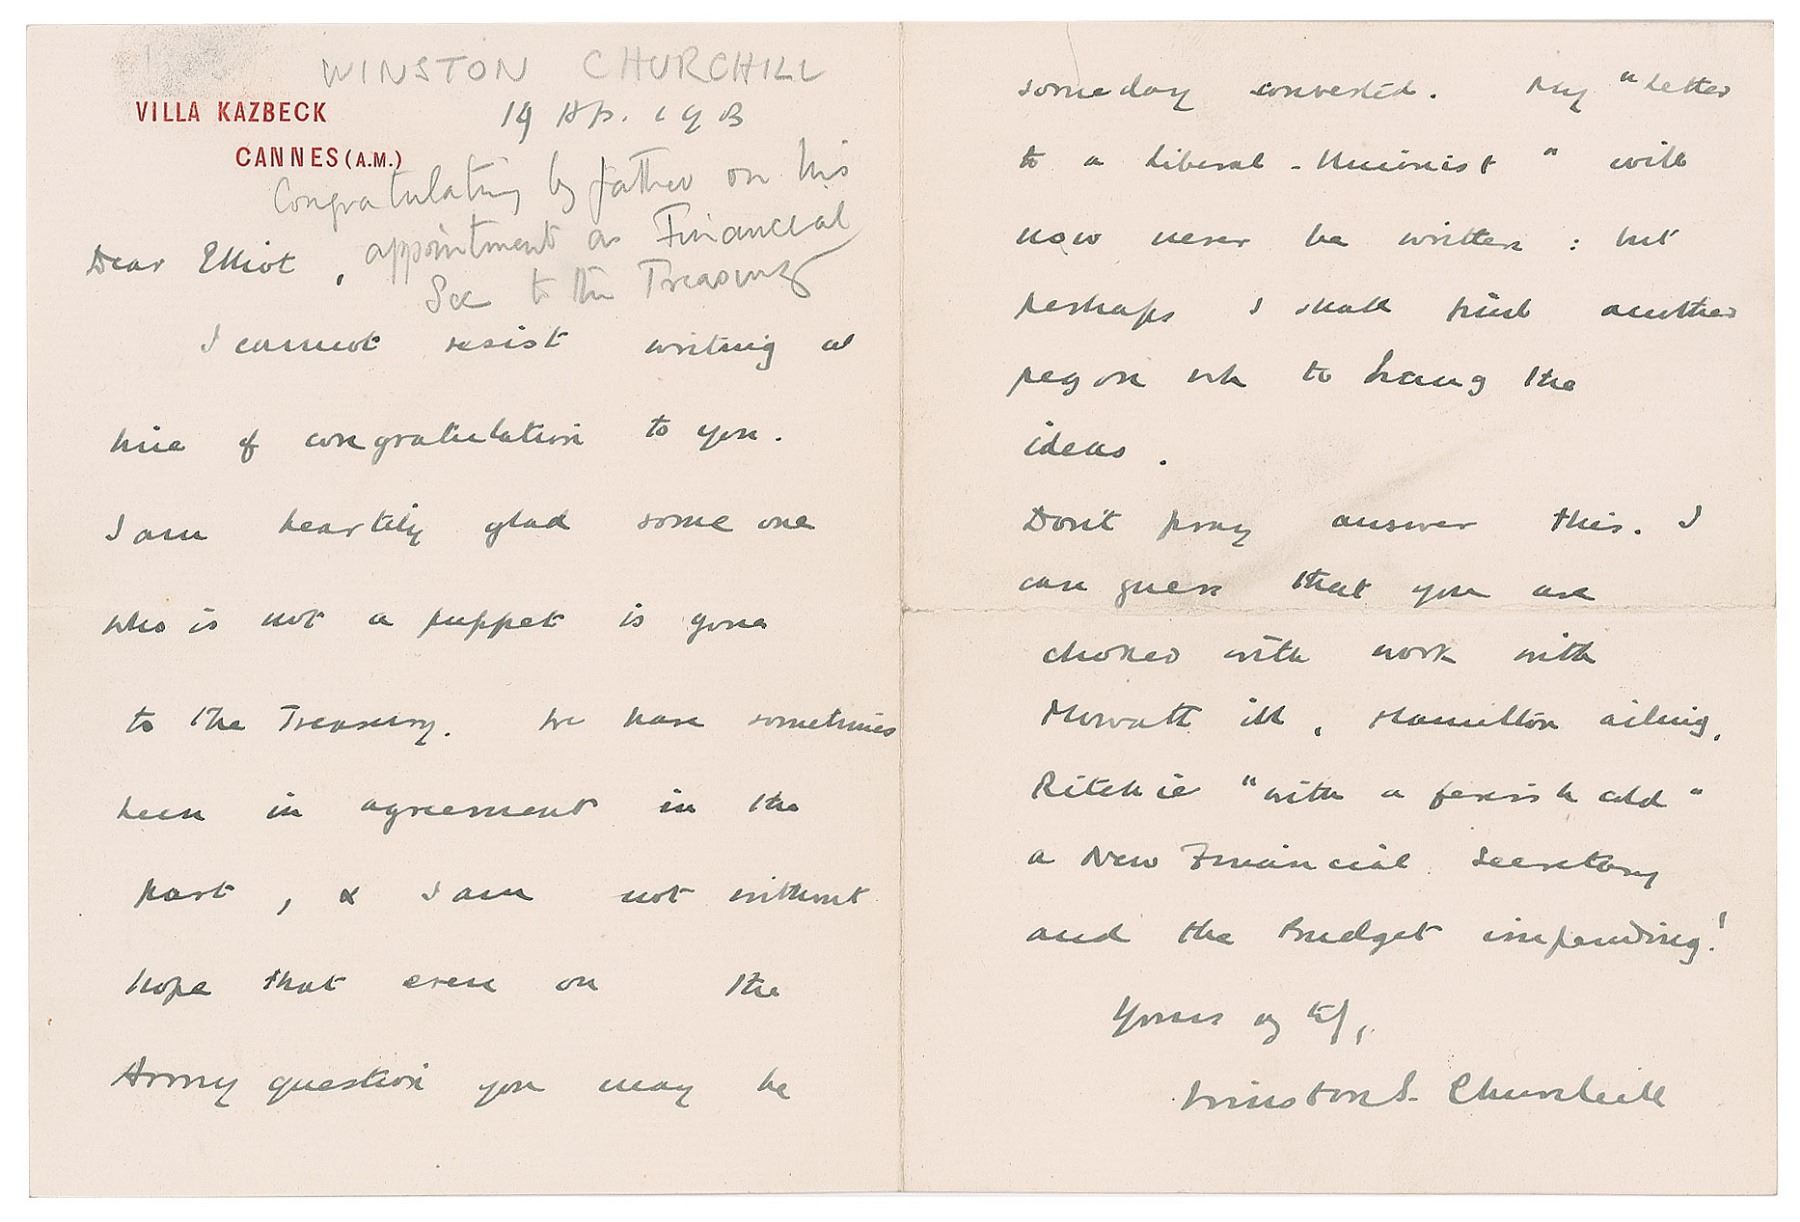 WINSTON CHURCHILL
VILLA KAZBECK
14 Ap. 1903
CANNES (A.M.)
Congratulating by father on his
appointment as Financial
Sec to the Treasury
Dear Elliot,
I cannot resist writing a
line of congratulation to you.
I am heartily glad some one
who is not a puppet is gone
to the Treasury. We have sometimes
been in agreement in the
past, & I am not without
hope that even on the
Army question you may be
someday converted. My "Letter
to a Liberal-Unionist" will
now never be written: but
perhaps I shall find another
peg on wh to hang the
ideas.
Don't pray answer this. I
can guess that you are
choked with work with
Mowatt ill, Hamilton ailing,
Ritchie "with a feverish cold"
a New Financial Secretary
and the Budget impending!
Yours
Winston S. Churchill